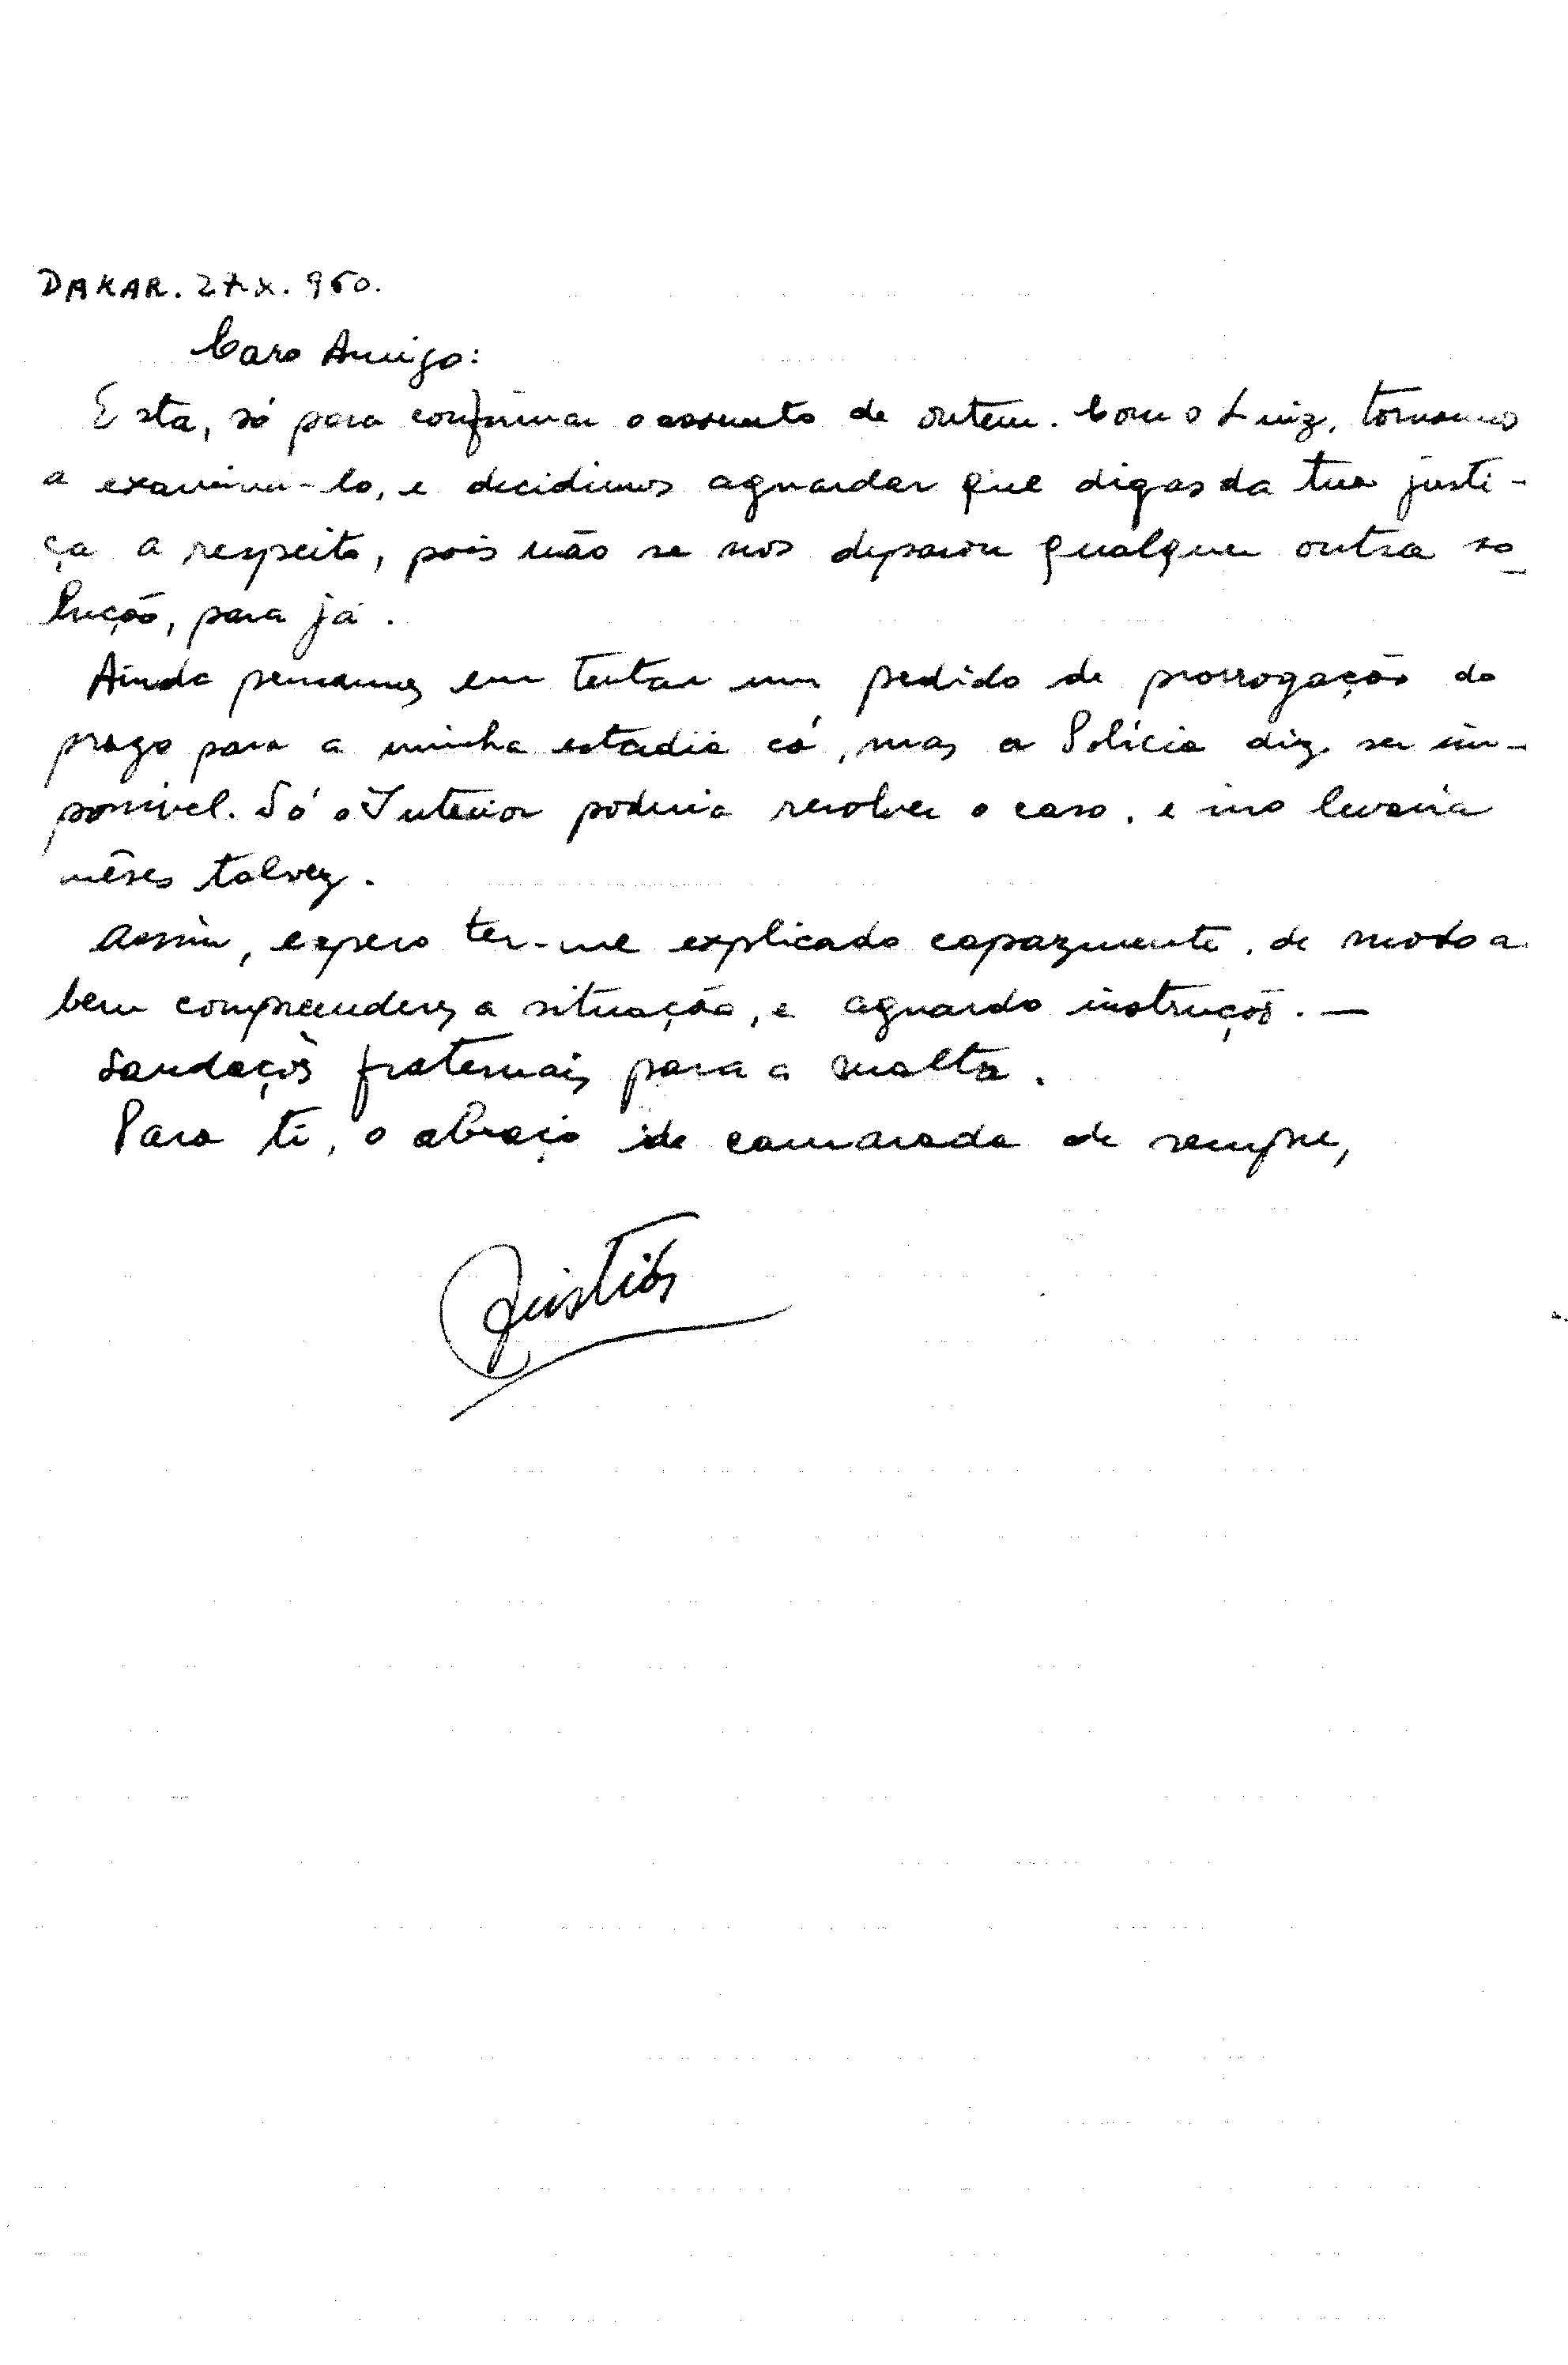 DAKAR. 27.X.960.
Caro Amigo:
Esta, só para confirmar o assunto de ontem. Com o Luiz, tornamos
a examina-lo, e decidimos aguardar que digas da tua justi-
ça a respeito, pois não se nos deparou qualquer outra so-
lução, para já.
Ainda pensamos em tentar um pedido de prorrogação do
prazo para a minha estadia cá, mas a Polícia diz ser im-
possivel. Só o Interior poderia resolver o caso, e isso levaria
mêses talvez.
Assim, espero ter-me explicado capazmente, de modo a
bem compreenderes a situação, e aguardo instruções. —
Saudações fraternais para a malta.
Para ti, o abraço do camarada de sempre,